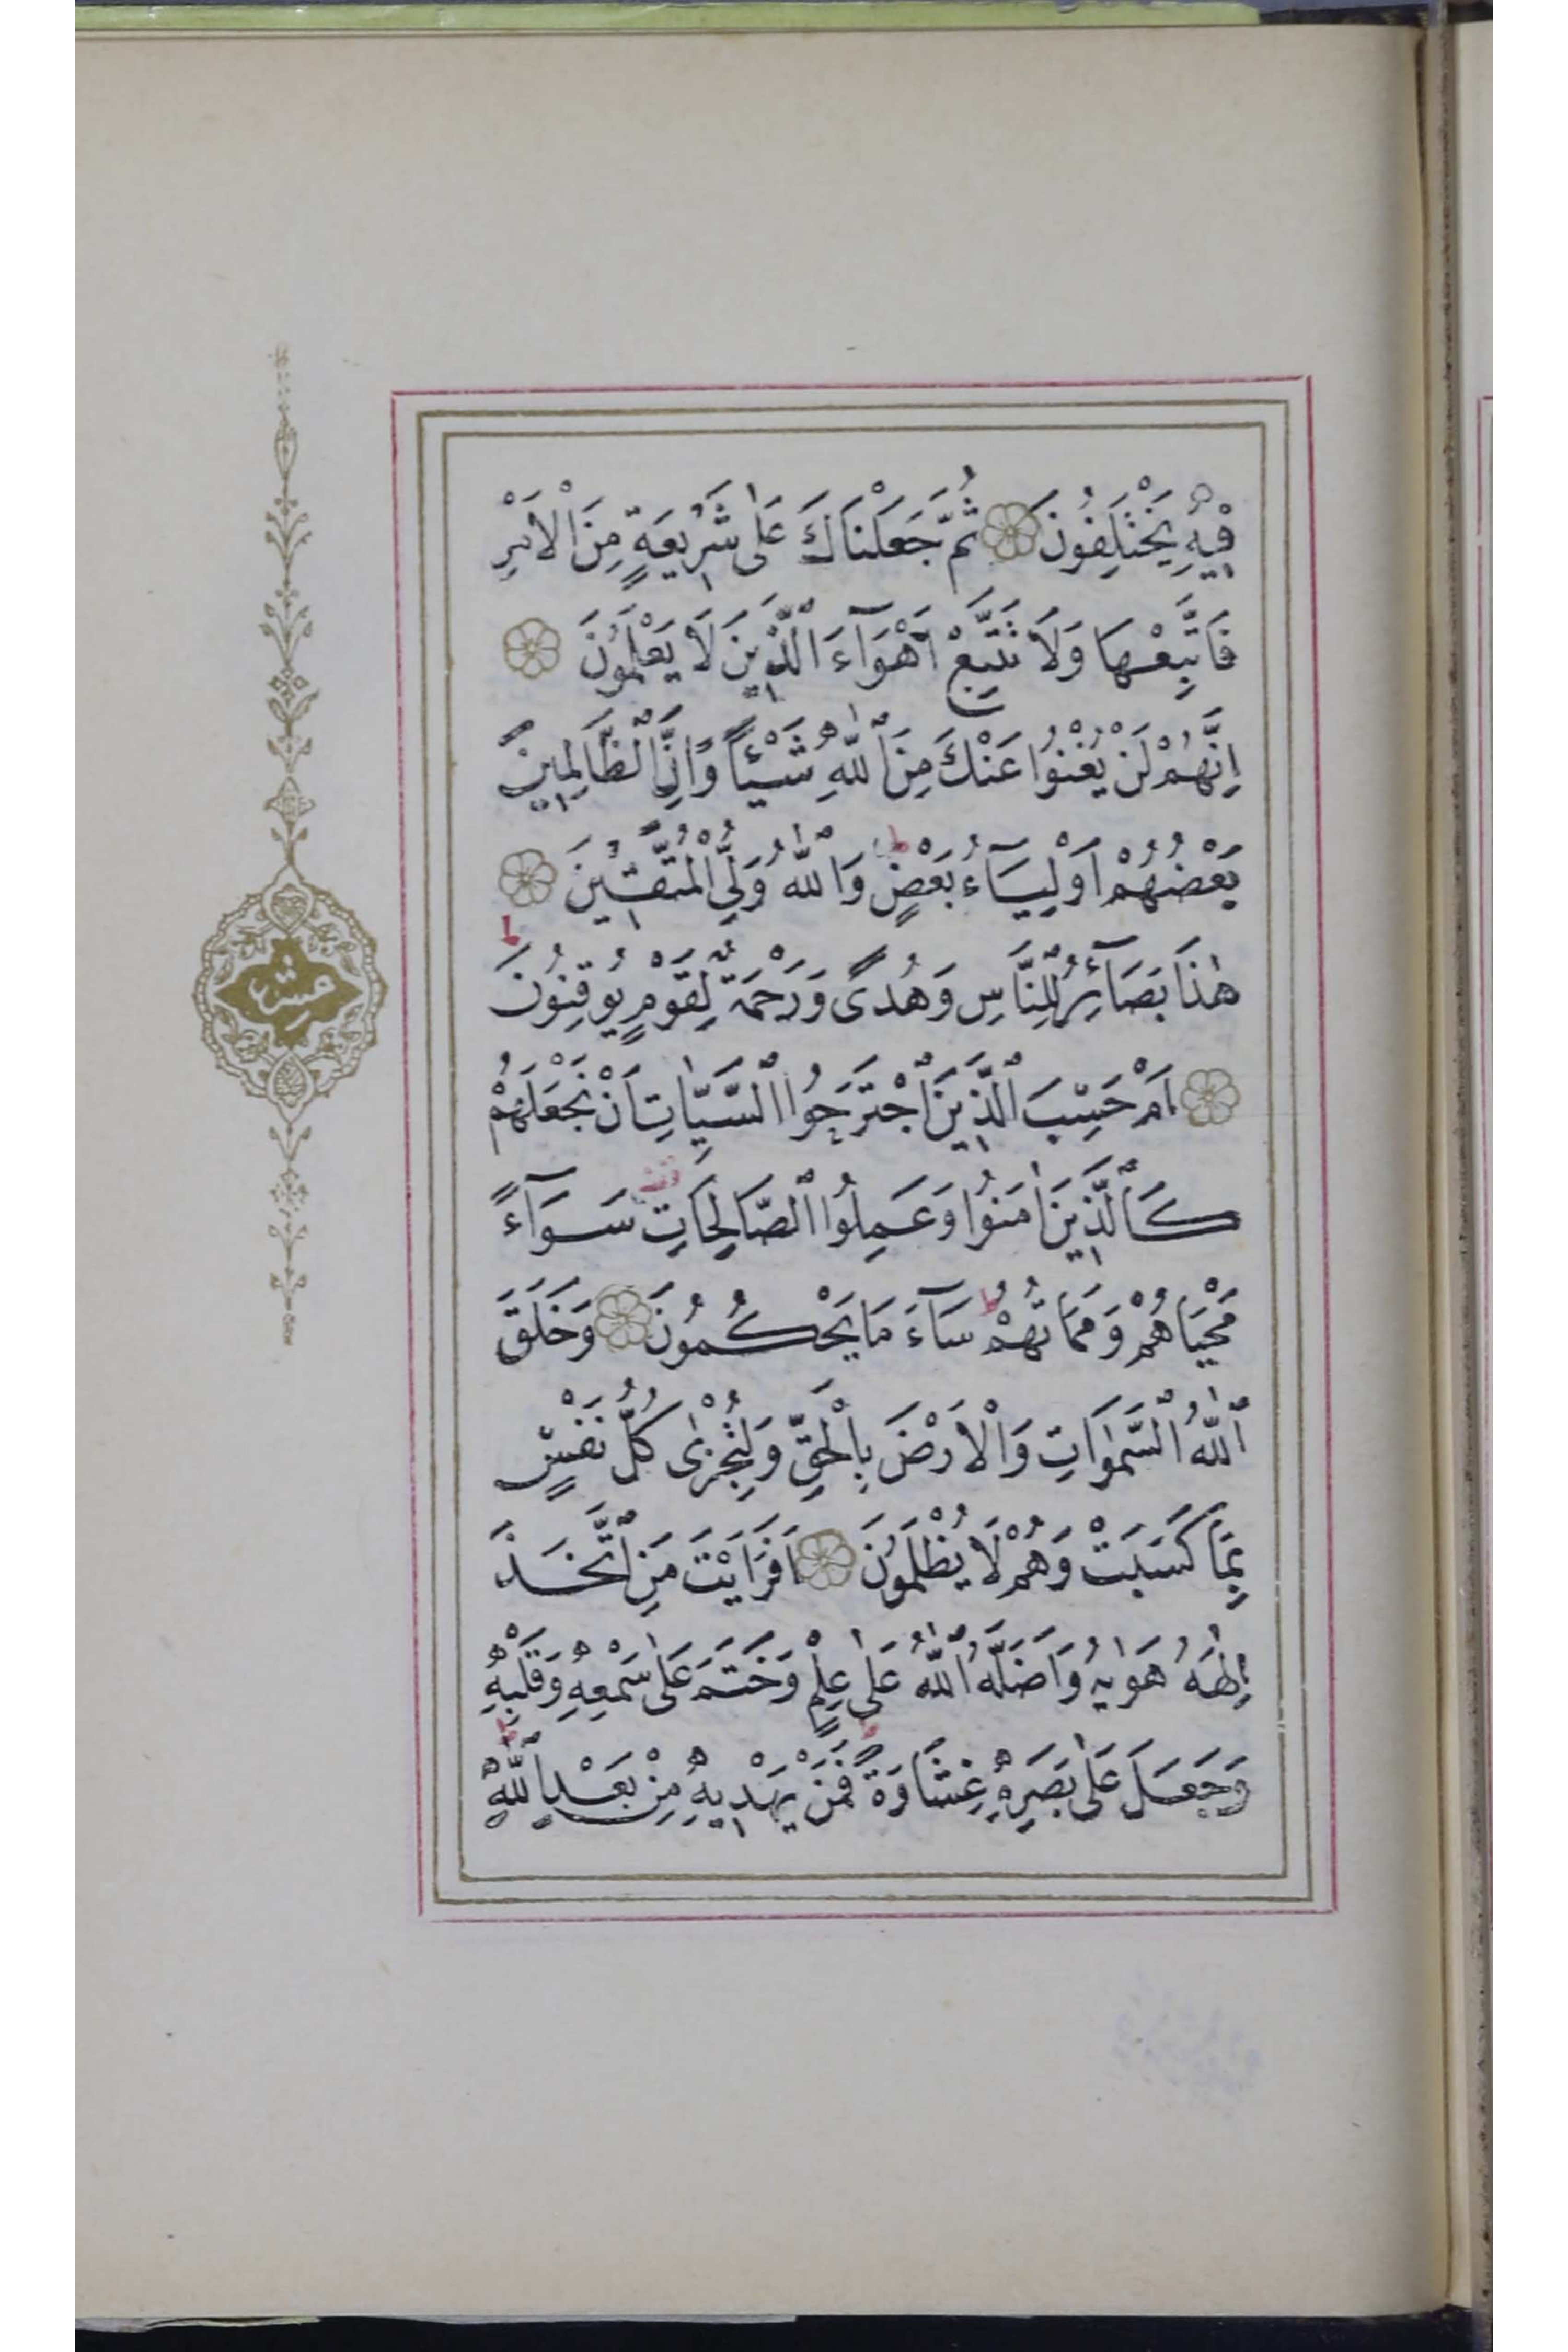 فِيهِ يَخْتَلِفُونَ ثُمَّ جَعَلْنَاكَ عَلٰى شَرِيعَةٍ مِنَ الْاَمْرِ
فَاتَّبِعْهَا وَلَا تَتَّبِعْ اَهْوَآءَ الَّذِينَ لَا يَعْلَمُونَ
اِنَّهُمْ لَنْ يُغْنُوا عَنْكَ مِنَ اللّٰهِ شَيْئًا وَاِنَّ الظَّالِمِينَ
بَعْضُهُمْ اَوْلِيَآءُ بَعْضٍ ط وَاللّٰهُ وَلِيُّ الْمُتَّقِينَ
هٰذَا بَصَآئِرُ لِلنَّاسِ وَهُدًى وَرَحْمَةٌ لِقَوْمٍ يُوقِنُونَ ط
اَمْ حَسِبَ الَّذِينَ اجْتَرَحُوا السَّيِّاٰتِ اَنْ نَجْعَلَهُمْ
كَالَّذِينَ اٰمَنُوا وَعَمِلُوا الصَّالِحَاتِ سَوَآءً
مَحْيَاهُمْ وَمَمَاتُهُمْ ط سَآءَ مَا يَحْكُمُونَ وَخَلَقَ
اللّٰهُ السَّمٰوَاتِ وَالْاَرْضَ بِالْحَقِّ وَلِتُجْزٰى كُلُّ نَفْسٍ
بِمَا كَسَبَتْ وَهُمْ لَا يُظْلَمُونَ اَفَرَاَيْتَ مَنِ اتَّخَذَ
اِلٰهَهُ هَوٰيهُ وَاَضَلَّهُ اللّٰهُ عَلٰى عِلْمٍ وَخَتَمَ عَلٰى سَمْعِهِ وَقَلْبِهِ
وَجَعَلَ عَلٰى بَصَرِهِ غِشَاوَةً ط فَمَنْ يَهْدِيهِ مِنْ بَعْدِ اللّٰهِ ط
عشر